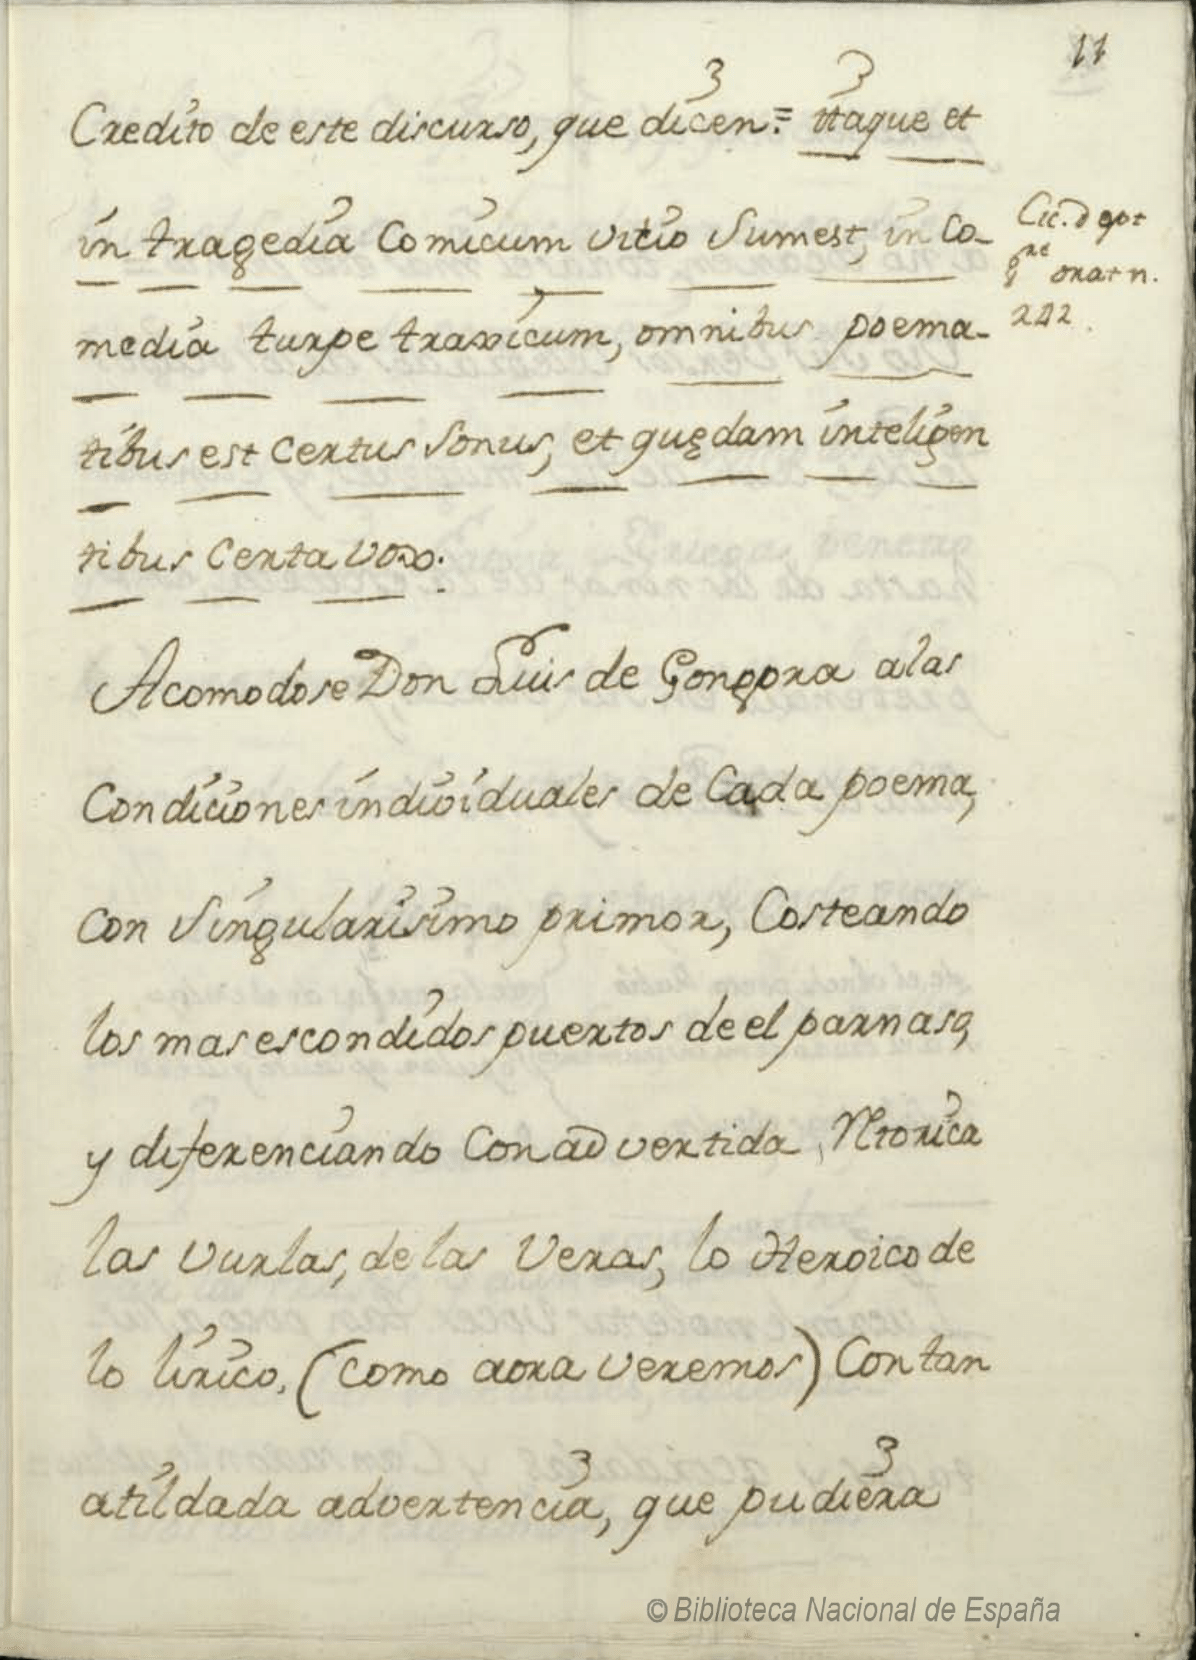 11
Credito de este discurso, que dicen: = itaque et
in tragedia Comicum vitio Sumest, in Co-
media turpe traxicum, omnibus poema-
tibus est Certus Sonus, et quędam inteligen
tibus Certa voxo.
Cic. d opt
gre orat n.
212.
Acomodose Don Luis de Gongora a las
Condiciones individuales de Cada poema,
Con Singularisimo primor, Costeando
los mas escondidos puertos de el parnaso,
y diferenciando Con advertida, Rtorica
las Vurlas, de las Veras, lo Heroico de
lo lirico, (como aora veremos) Con tan
atildada advertencia, que pudiera
© Biblioteca Nacional de España